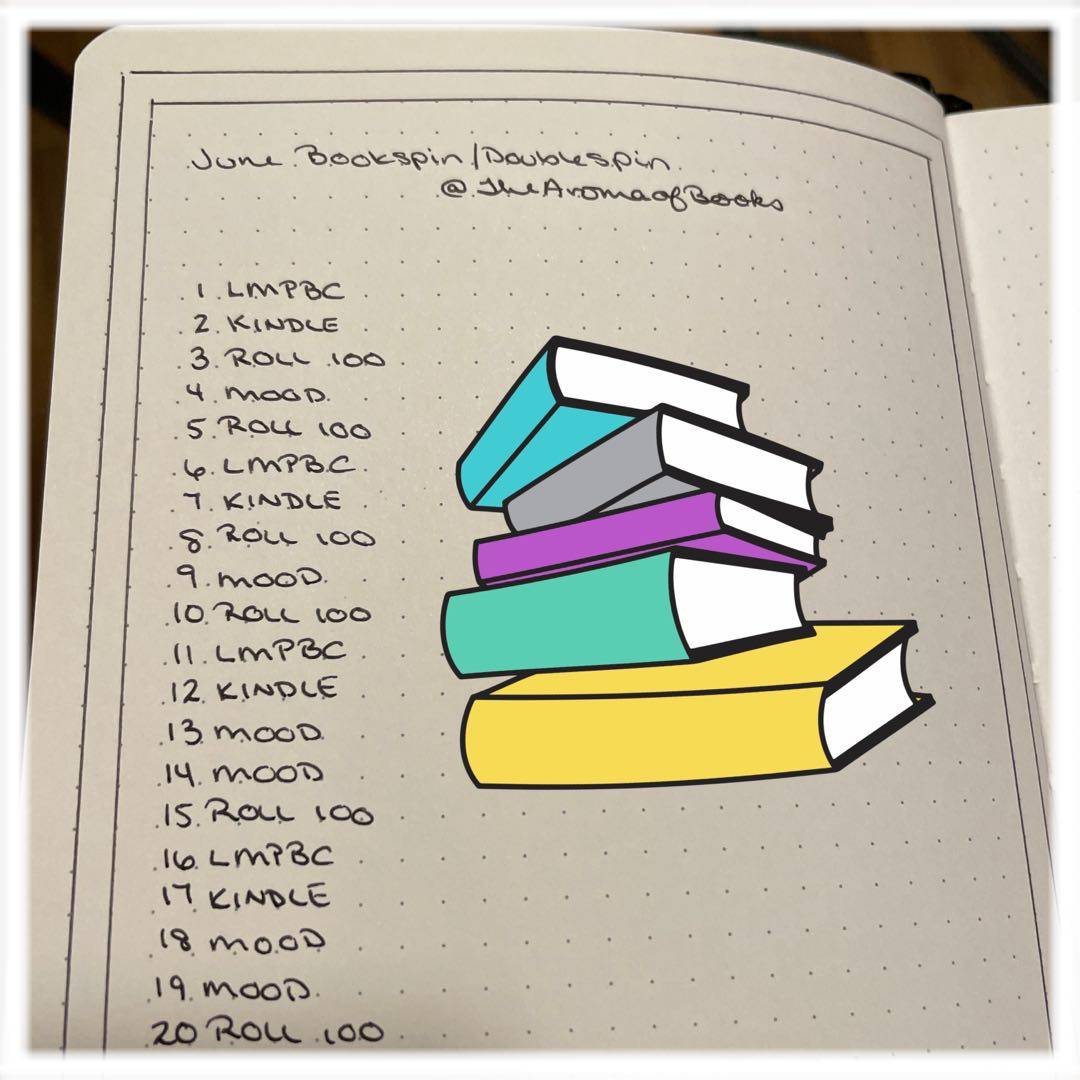 June Bookspin/Doublespin
@TheAromaofBooks
1. LMPBC
2. KINDLE
3. ROLL 100
4. MOOD
5. ROLL 100
6. LMPBC
7. KINDLE
8. ROLL 100
9. MOOD
10. ROLL 100
11. LMPBC
12. KINDLE
13. MOOD
14. MOOD
15. ROLL 100
16. LMPBC
17 KINDLE
18 MOOD
19. MOOD
20 ROLL 100